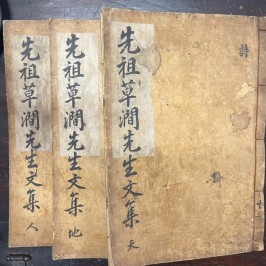 先祖草澗先生文集 天
詩
先祖草澗先生文集 地
先祖草澗先生文集 人